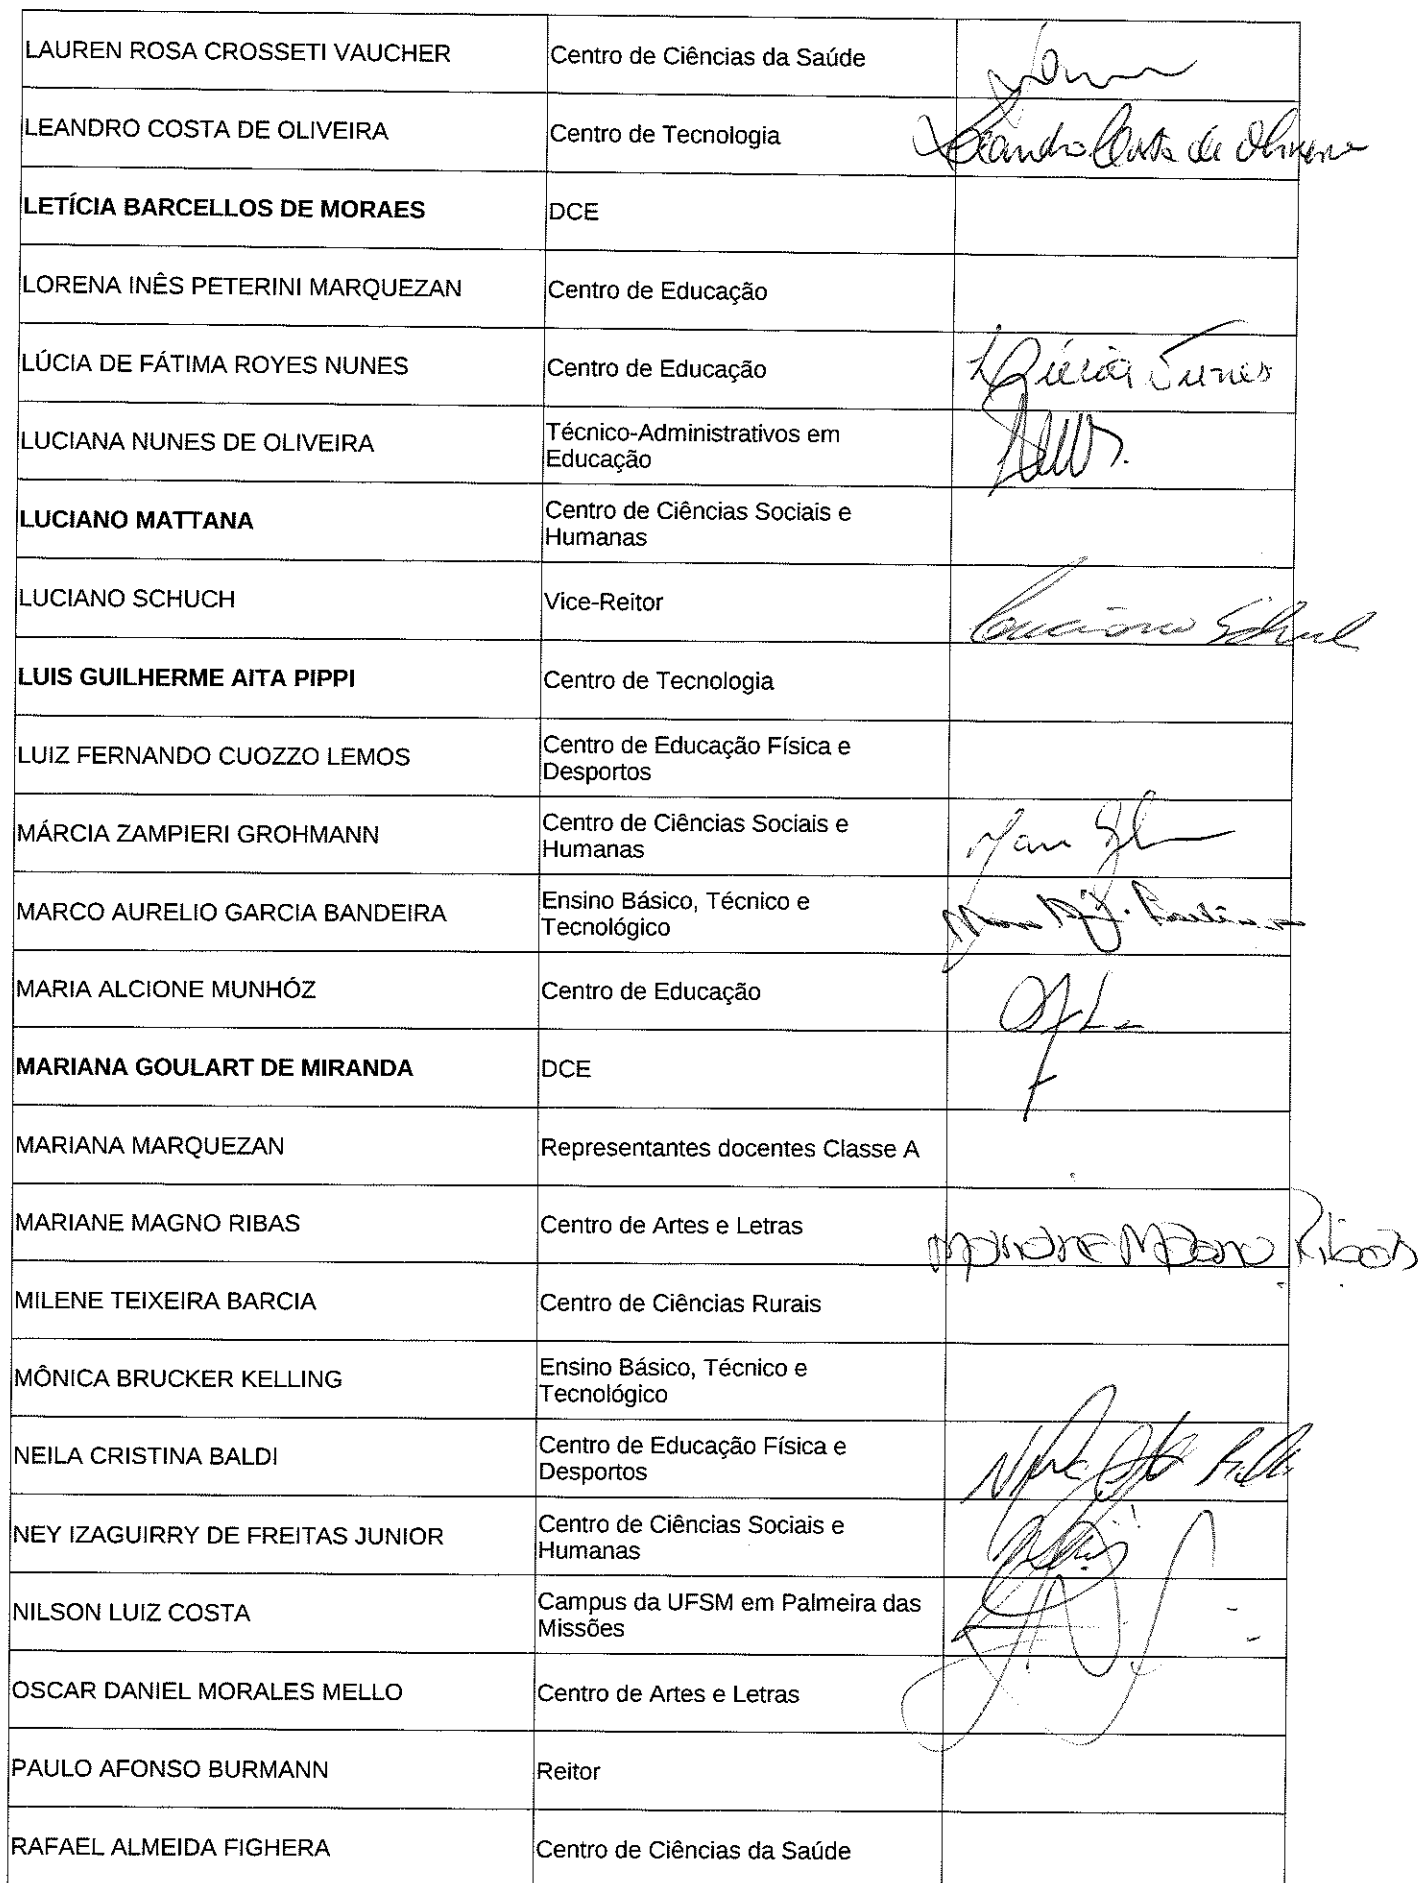 LAUREN ROSA CROSSETI VAUCHER Centro de Ciências da Saúde
LEANDRO COSTA DE OLIVEIRA Centro de Tecnologia Leandro Costa de Oliveira
LETÍCIA BARCELLOS DE MORAES DCE
LORENA INÊS PETERINI MARQUEZAN Centro de Educação
LÚCIA DE FÁTIMA ROYES NUNES Centro de Educação Lúcia Nunes
LUCIANA NUNES DE OLIVEIRA Técnico-Administrativos em
Educação
LUCIANO MATTANA Centro de Ciências Sociais e
Humanas
LUCIANO SCHUCH Vice-Reitor Luciano Schuch
LUIS GUILHERME AITA PIPPI Centro de Tecnologia
LUIZ FERNANDO CUOZZO LEMOS Centro de Educação Física e
Desportos
MÁRCIA ZAMPIERI GROHMANN Centro de Ciências Sociais e
Humanas
MARCO AURELIO GARCIA BANDEIRA Ensino Básico, Técnico e
Tecnológico
MARIA ALCIONE MUNHÓZ Centro de Educação
MARIANA GOULART DE MIRANDA DCE
MARIANA MARQUEZAN Representantes docentes Classe A
MARIANE MAGNO RIBAS Centro de Artes e Letras Mariane Magno Ribas
MILENE TEIXEIRA BARCIA Centro de Ciências Rurais
MÔNICA BRUCKER KELLING Ensino Básico, Técnico e
Tecnológico
NEILA CRISTINA BALDI Centro de Educação Física e
Desportos
NEY IZAGUIRRY DE FREITAS JUNIOR Centro de Ciências Sociais e
Humanas
NILSON LUIZ COSTA Campus da UFSM em Palmeira das
Missões
OSCAR DANIEL MORALES MELLO Centro de Artes e Letras
PAULO AFONSO BURMANN Reitor
RAFAEL ALMEIDA FIGHERA Centro de Ciências da Saúde